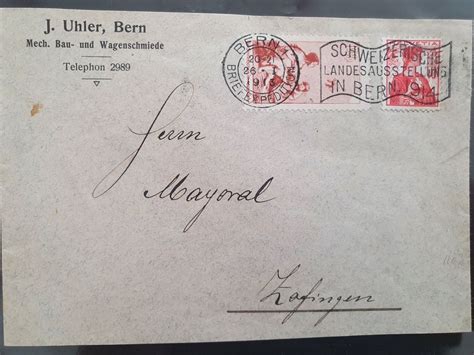 J. Uhler, Bern
Mech. Bau- und Wagenschmiede
Telephon 2989
BERN 1
BRIEFEXPEDITION
SCHWEIZERISCHE
LANDESAUSSTELLUNG
IN BERN 1914
Herrn
Mayoral
Zofingen